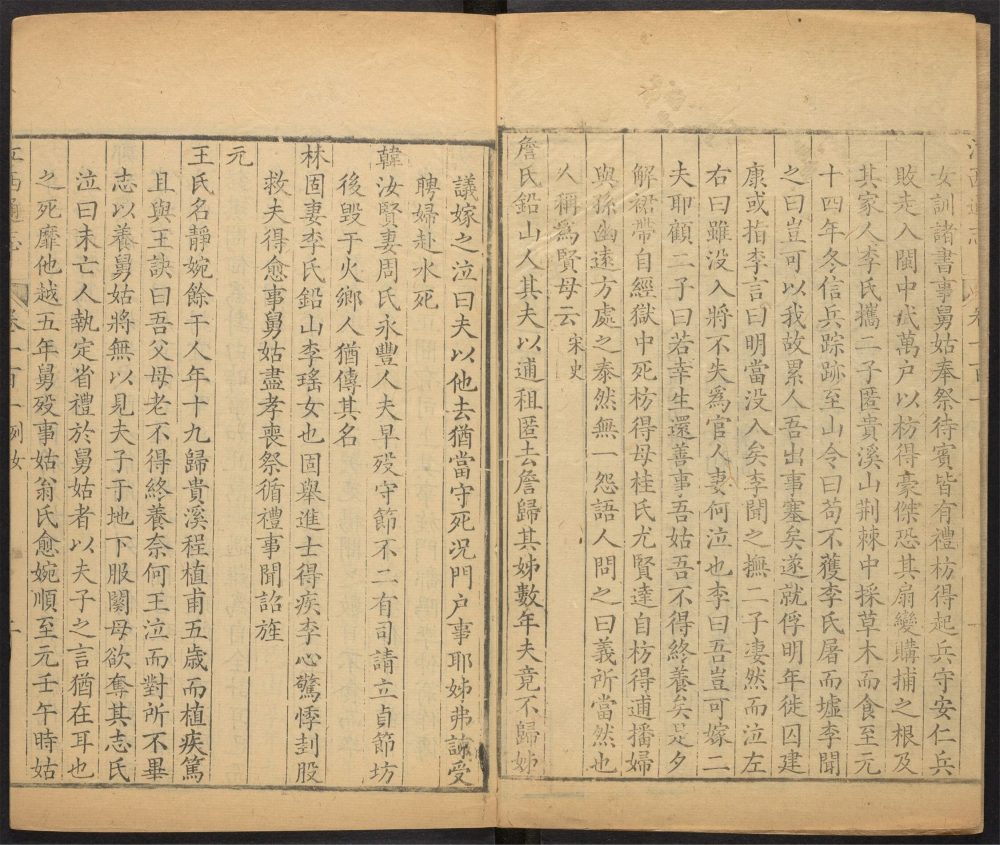 女訓諸書事舅姑奉祭待賓皆有禮枋得起兵守安仁兵
敗走入閩中武萬户以枋得豪傑恐其扇變購捕之根及
其家人李氏攜二子匿貴溪山荆棘中採草木而食至元
十四年冬信兵踪跡至山令曰苟不獲李氏屠而墟李聞
之曰豈可以我故累人吾出事塞矣遂就俘明年徙囚建
康或指李言曰明當没入矣李聞之撫二子凄然而泣左
右曰雖没入將不失爲官人妻何泣也李曰吾豈可嫁二
夫耶顧二子曰若幸生還善事吾姑吾不得終養矣是夕
解裙帶自經獄中死枋得母桂氏尤賢達自枋得逋播婦
與孫幽遠方處之泰然無一怨語人問之曰義所當然也
人稱爲賢母云宋史
詹氏鉛山人其夫以逋租匿去詹歸其姊數年夫竟不歸姊
議嫁之泣曰夫以他去猶當守死况門户事耶姊弗諭受
聘婦赴水死
韓汝賢妻周氏永豐人夫早殁守節不二有司請立貞節坊
後毀于火鄉人猶傳其名
林固妻李氏鉛山李瑤女也固舉進士得疾李心驚悸刲股
救夫得愈事舅姑盡孝喪祭循禮事聞詔旌
元
王氏名靜婉餘干人年十九歸貴溪程植甫五歲而植疾篤
且與王訣曰吾父母老不得終養奈何王泣而對所不畢
志以養舅姑將無以見夫子于地下服闋母欲奪其志氏
泣曰未亡人執定省禮於舅姑者以夫子之言猶在耳也
之死靡他越五年舅殁事姑翁氏愈婉順至元壬午時姑